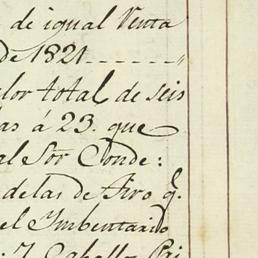 de igual Venta
de 1821
lor total de seis
as á 23. que
al Sor Conde:
delas de Tiro q.
el Imbentario